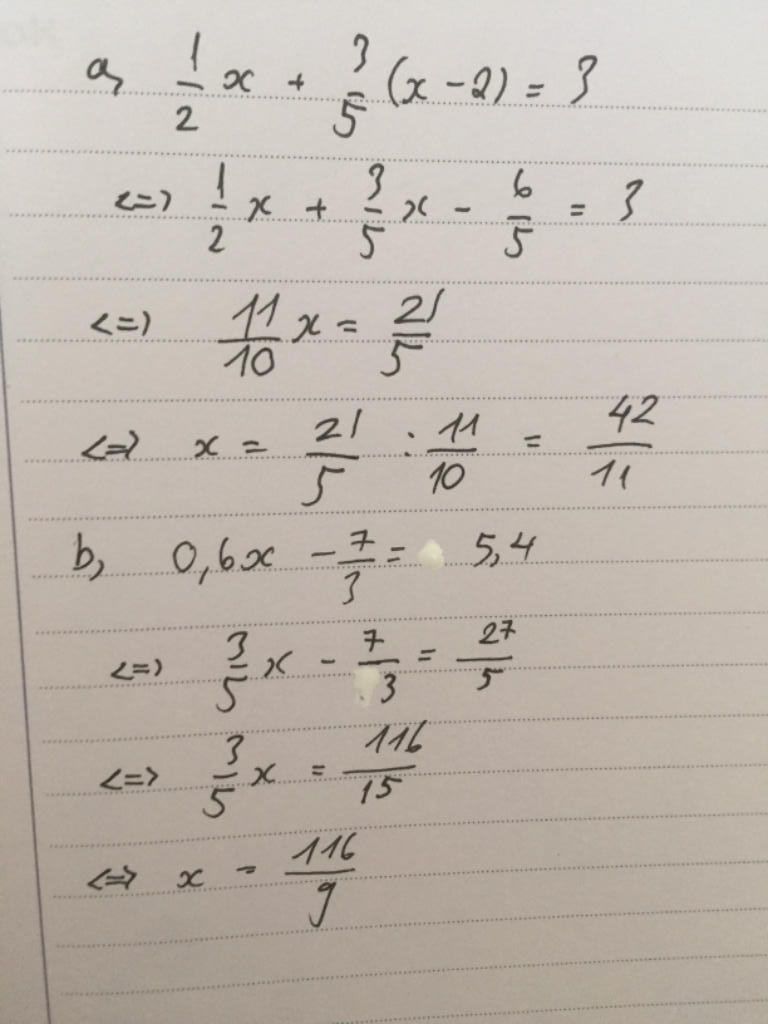 a, 1/2 x + 3/5 (x - 2) = 3
<=> 1/2 x + 3/5 x - 6/5 = 3
<=> 11/10 x = 21/5
<=> x = 21/5 : 11/10 = 42/11
b, 0,6x - 7/3 = 5,4
<=> 3/5 x - 7/3 = 27/5
<=> 3/5 x = 116/15
<=> x = 116/9